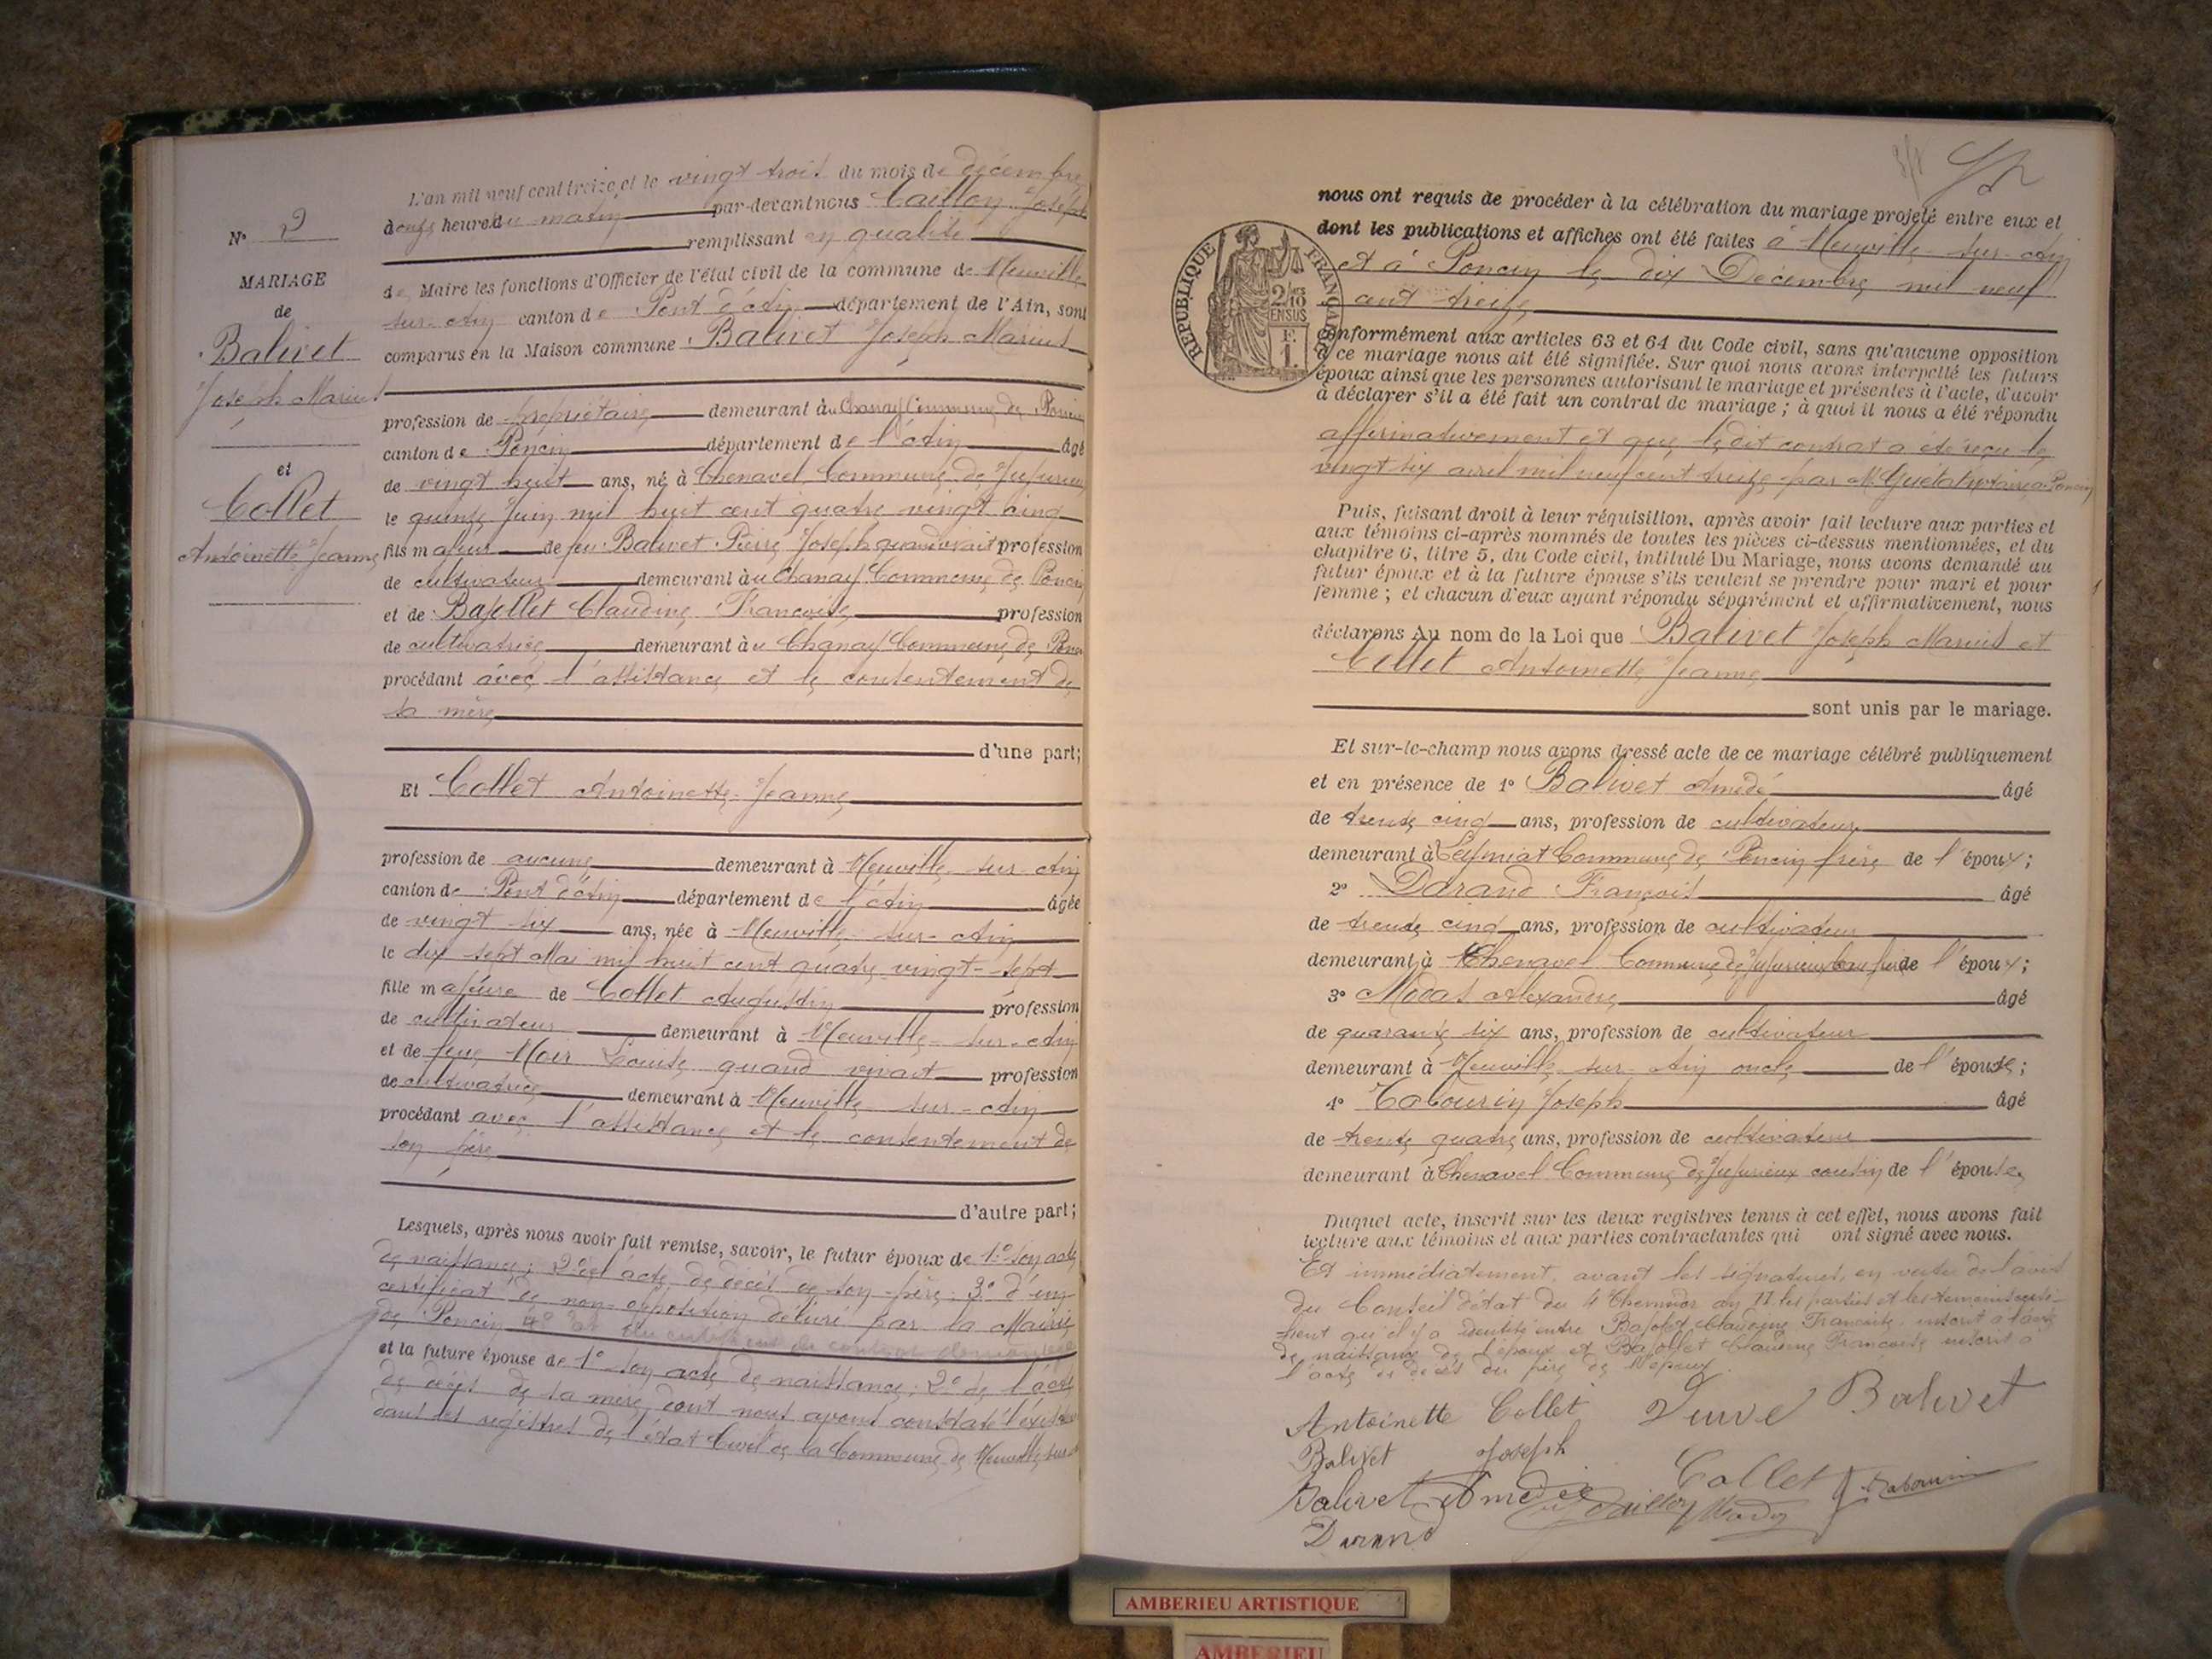 N° 9
MARIAGE
de
Balivet
Joseph Marius
et
Collet
Antoinette Jeanne
L'an mil neuf cent treize et le vingt trois du mois de décembre
heure du matin par-devant nous Caillon Joseph
remplissant en qualité
de Maire les fonctions d'Officier de l'état civil de la commune de Neuville
sur-Ain canton de Pont d'Ain département de l'Ain, sont
comparus en la Maison commune Balivet Joseph Marius
profession de propriétaire demeurant à Chanay Commune de Poncin
canton de Poncin département de l'Ain âgé
de vingt huit ans, né à Chenavel Commune de Jujurieux
le quinze Juin mil huit cent quatre vingt cinq
fils majeur de feu Balivet Pierre Joseph quand vivait profession
de cultivateur demeurant à Chanay Commune de Poncin
et de Bajollet Claudine Françoise profession
de cultivatrice demeurant à Chanay Commune de Poncin
procédant avec l'assistance et le consentement de
sa mère
d'une part;
Et Collet Antoinette Jeanne
profession de aucune demeurant à Neuville-sur-Ain
canton de Pont d'Ain département de l'Ain âgée
de vingt six ans, née à Neuville-sur-Ain
le dix sept Mai mil huit cent quatre vingt-sept
fille majeure de Collet Augustin profession
de cultivateur demeurant à Neuville-sur-Ain
et de feue Noir Louise quand vivait profession
de cultivatrice demeurant à Neuville-sur-Ain
procédant avec l'assistance et le consentement de
son père
d'autre part;
Lesquels, après nous avoir fait remise, savoir, le futur époux de 1° son acte
de naissance; 2° de l'acte de décès de son père; 3° d'un
certificat de non-opposition délivré par la Mairie
de Poncin 4°
et la future épouse de 1° son acte de naissance; 2° de l'acte
de décès de sa mère, dont nous avons constaté l'existence
dans les registres de l'état Civil de la Commune de Neuville sur-Ain
nous ont requis de procéder à la célébration du mariage projeté entre eux et
dont les publications et affiches ont été faites à Neuville-sur-Ain
et à Poncin le dix Décembre mil neuf
cent treize
RÉPUBLIQUE FRANÇAISE
2/10 EN SUS
F. 1.
conformément aux articles 63 et 64 du Code civil, sans qu'aucune opposition
à ce mariage nous ait été signifiée. Sur quoi nous avons interpellé les futurs
époux ainsi que les personnes autorisant le mariage et présentes à l'acte, d'avoir
à déclarer s'il a été fait un contrat de mariage; à quoi il nous a été répondu
affirmativement et que ledit contrat a été reçu le
vingt six avril mil neuf cent treize par Me notaire à Poncin
Puis, faisant droit à leur réquisition, après avoir fait lecture aux parties et
aux témoins ci-après nommés de toutes les pièces ci-dessus mentionnées, et du
chapitre 6, titre 5, du Code civil, intitulé Du Mariage, nous avons demandé au
futur époux et à la future épouse s'ils veulent se prendre pour mari et pour
femme; et chacun d'eux ayant répondu séparément et affirmativement, nous
déclarons Au nom de la Loi que Balivet Joseph Marius et
Collet Antoinette Jeanne
sont unis par le mariage.
Et sur-le-champ nous avons dressé acte de ce mariage célébré publiquement
et en présence de 1° Balivet Amédé âgé
de trente cinq ans, profession de cultivateur
demeurant à Leymiat Commune de Poncin frère de l'époux;
2° Durand François âgé
de trente cinq ans, profession de cultivateur
demeurant à Chenavel Commune de Jujurieux beau frère de l'époux;
3° Alexandre âgé
de quarante six ans, profession de cultivateur
demeurant à Neuville-sur-Ain oncle de l'épouse;
4° Tabourin Joseph âgé
de trente quatre ans, profession de cultivateur
demeurant à Chenavel Commune de Jujurieux cousin de l'épouse
Duquel acte, inscrit sur les deux registres tenus à cet effet, nous avons fait
lecture aux témoins et aux parties contractantes qui ont signé avec nous.
Et immédiatement, avant les signatures, en vertu de l'avis
du Conseil d'état du 4 Thermidor an les parties et les témoins
qu'il y a identité entre Claudine Françoise inscrit à l'acte
de naissance de l'époux et Bajollet Claudine Françoise inscrit à
l'acte de décès du père de l'époux
Antoinette Collet Veuve Balivet
Balivet Joseph
Balivet Amédée Collet J. Tabourin
Caillon
Durand
AMBERIEU ARTISTIQUE
AMBERIEU